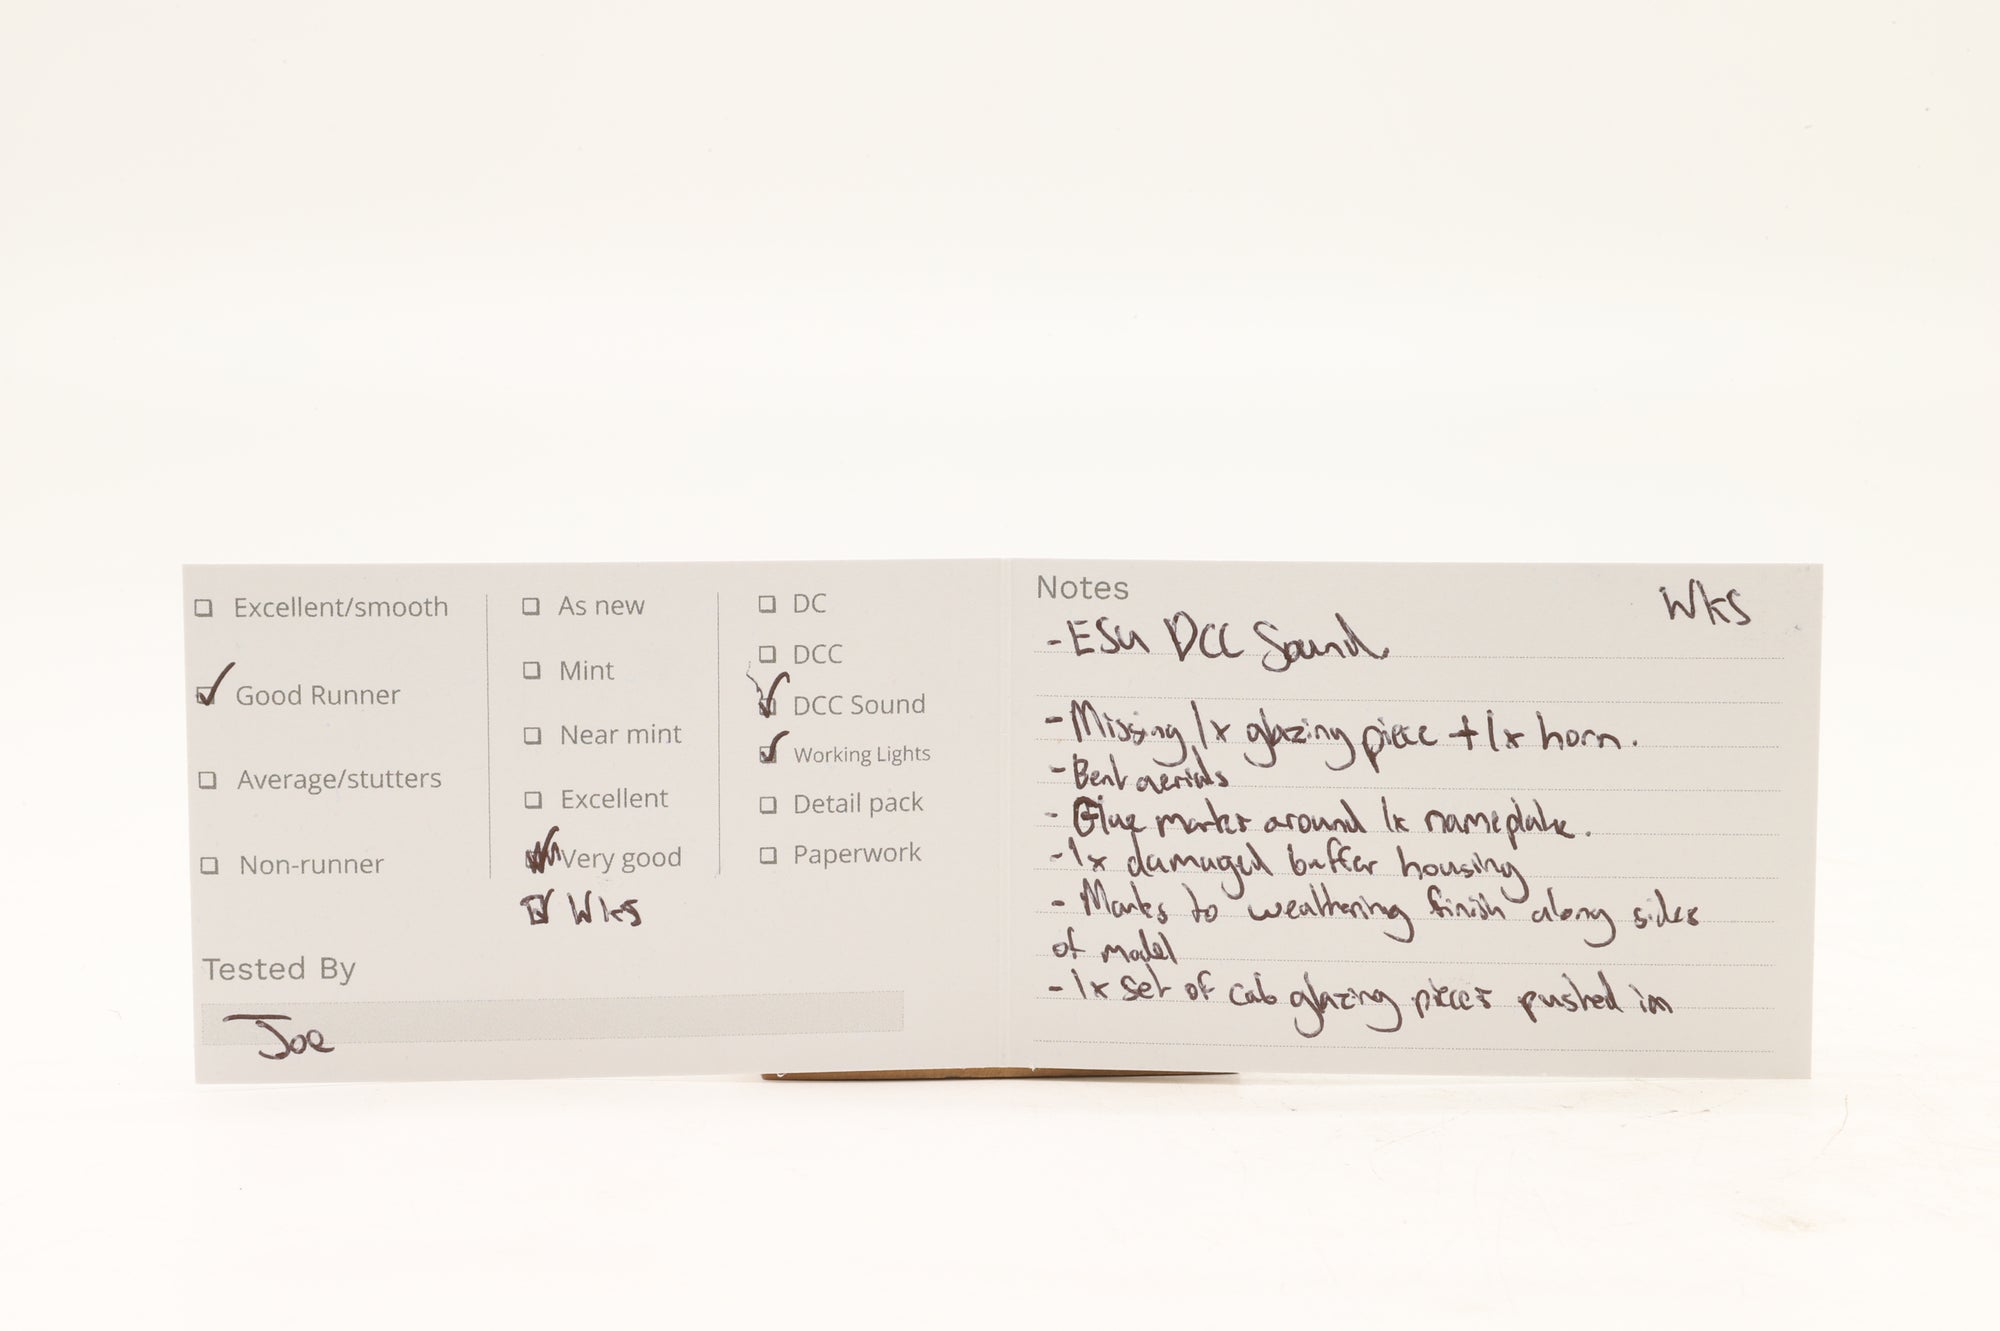 Excellent/smooth
Good Runner
Average/stutters
Non-runner
As new
Mint
Near mint
Excellent
Very good
Wks
DC
DCC
DCC Sound
Working Lights
Detail pack
Paperwork
Tested By
Joe
Notes
Wks
- ESU DCC Sound
- Missing 1x glazing piece + 1x horn.
- Bent aerials
- Glue marks around 1x nameplate.
- 1x damaged buffer housing
- Marks to weathering finish along sides
of model
- 1x set of cab glazing pieces pushed in